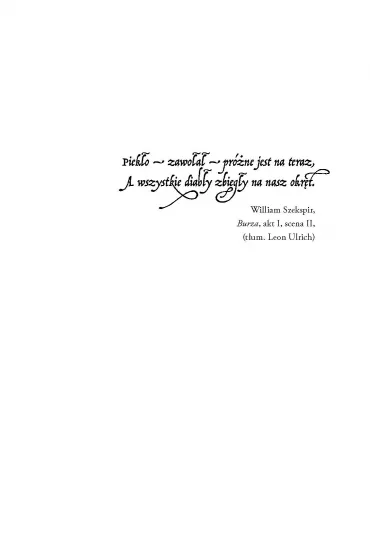 Piekło — zawołał — próżne jest na teraz,
A wszystkie diabły zbiegły na nasz okręt.
William Szekspir,
Burza, akt I, scena II,
(tłum. Leon Ulrich)